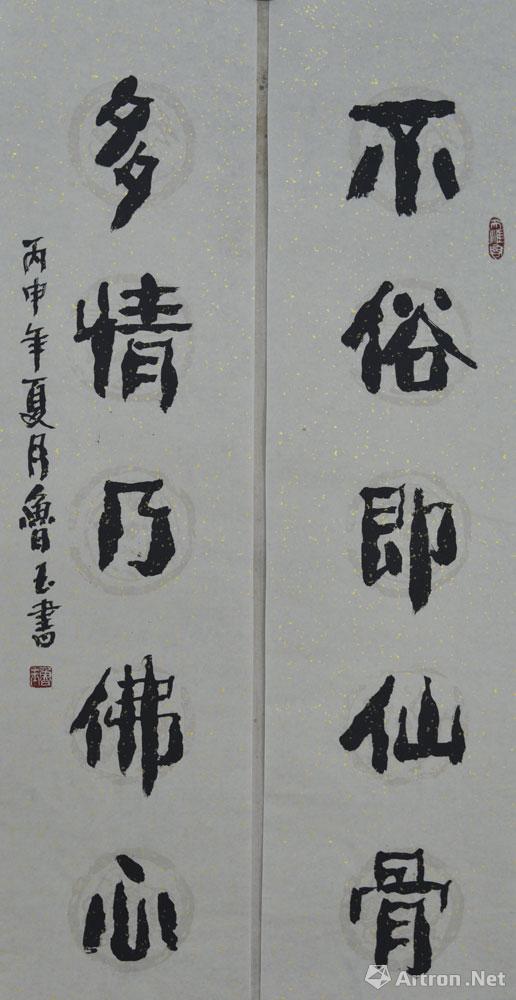 不俗即仙骨
多情乃佛心
丙申年夏月魯玉書
Artron.Net